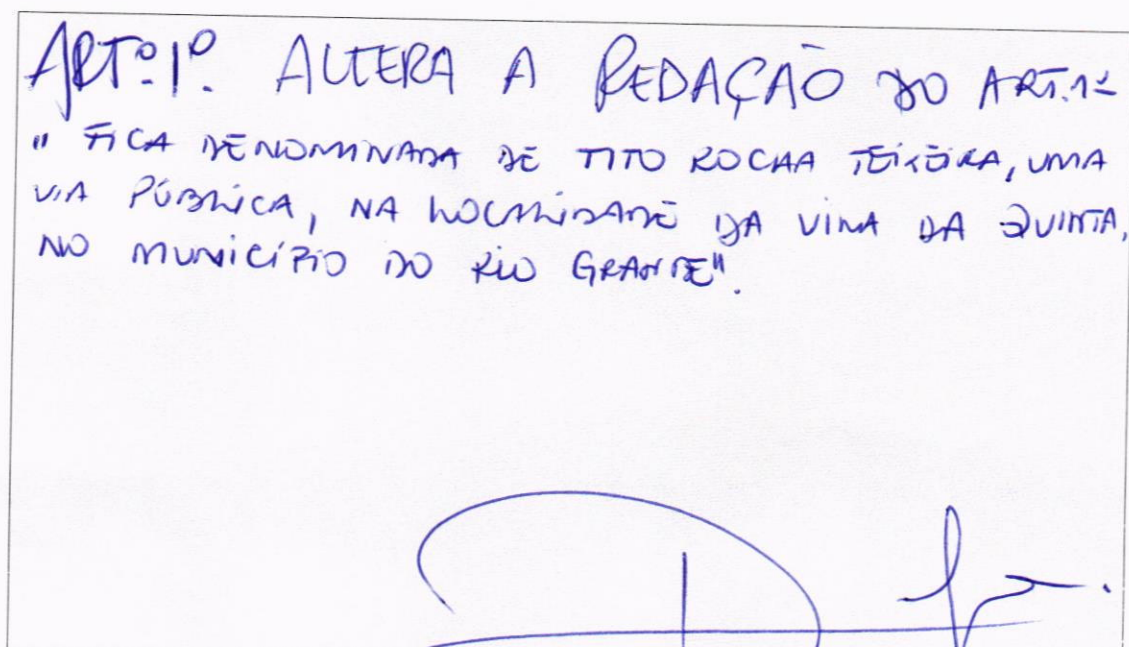 ARTº. 1º. ALTERA A REDAÇÃO DO ART.1º
" FICA DENOMINADA DE TITO ROCHA TEIXEIRA, UMA
VIA PÚBLICA, NA LOCALIDADE DA VILA DA QUINTA,
NO MUNICÍPIO DO RIO GRANDE".